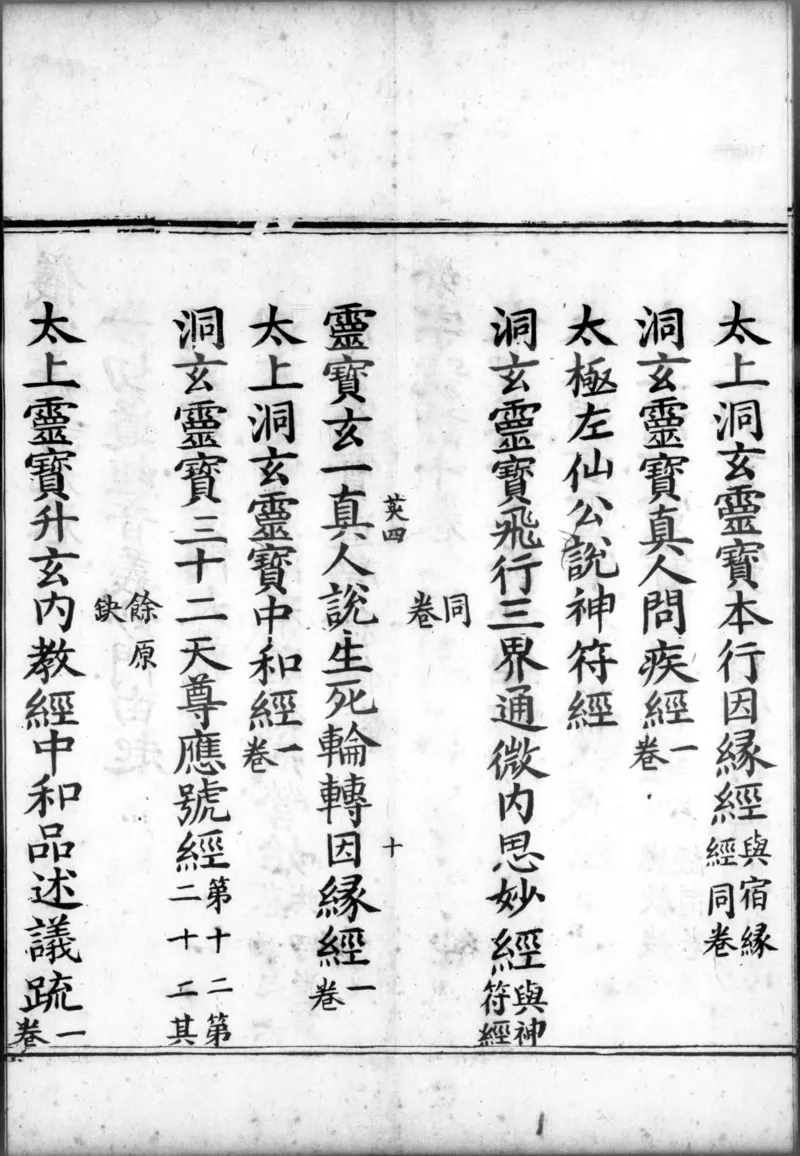 太上洞玄靈寶本行因緣經與宿緣經同卷
洞玄靈寶真人問疾經一卷
太極左仙公說神符經
洞玄靈寶飛行三界通微內思妙經與神符經
同卷
英四 十
靈寶玄一真人說生死輪轉因緣經一卷
太上洞玄靈寶中和經一卷
洞玄靈寶三十二天尊應號經第十二第二十二其
餘原缺
太上靈寶升玄內教經中和品述議疏一卷